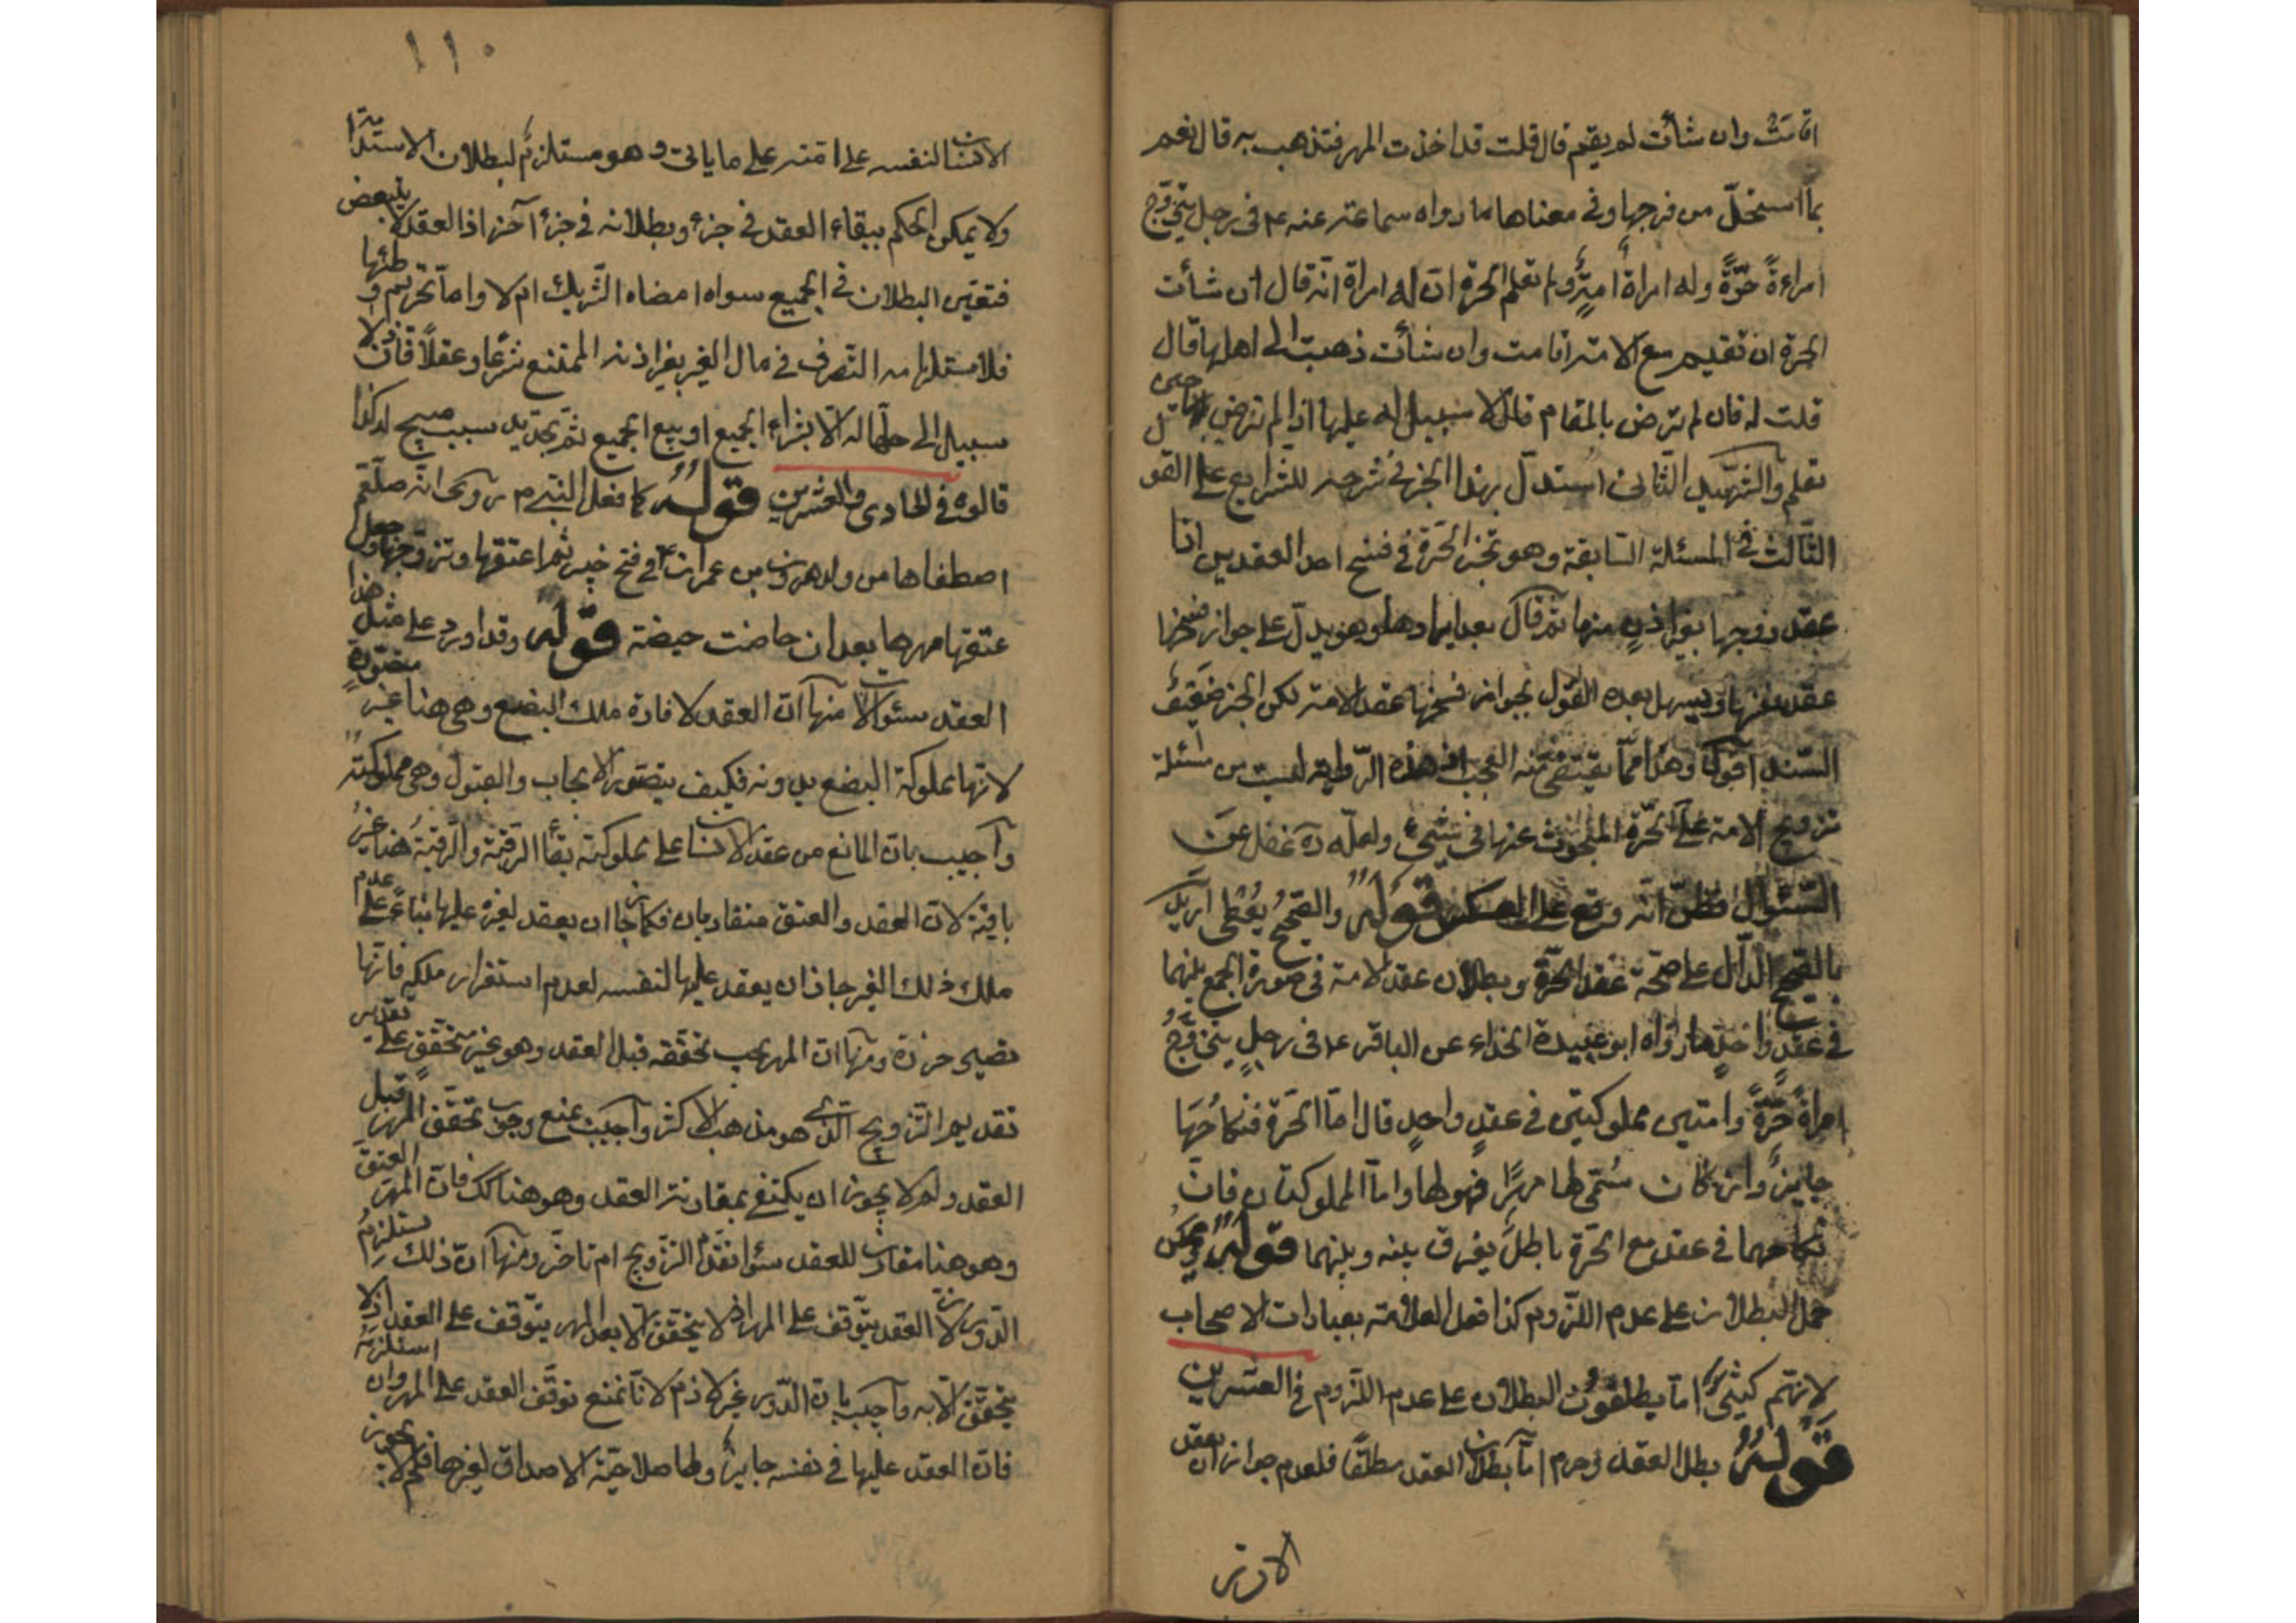 اقامت وان شأئت لم يقم قال قلت قد اخذت المهر فتذهب به قال نعم
بما استحلّ من فرجها وفى معناها ما رواه سماعتر عنه ع فى رجل يتزوّج
امراءةً حرّةً وله امراةٌ امةٌ ولم تعلم الحرة انّ له امراة انّه قال ان شأئت
الحرة ان تقيم مع الامة اقامت وان شأئت ذهبت الى اهلها قال
قلت له فان لم ترض بالمقام قال لا سبيل له عليها اذا لم ترض حين
تعلم والشهيد الثانى استدلّ بهذا الخبر فى شرحه للشرايع على القو
الثالث فى المسئلة السابقة وهو تخيّر الحرة فى فسخ احد العقدين انا
عقد زوجها بغير اذنٍ منها ثمّ قال بعد ايرادها وهو يدلّ على جواز فسخها
عقد نفسها ويسهل بعده القول بجواز فسخها عقد الامة لكن الخبر ضعيف
السّند اقول وهذا ممّا يقتضى منه العجب فان هذه الرّواية ليست من مسئلة
تزويج الامة على الحرّة المبحوث عنها فى شيئ ولعلّه ره غفل عن
السّئوال فظنّ انّه وقع على العكس قوله والصّحيح يعطى اريد
بالصّحيح الدّال على صحّة عقد الحرّة وبطلان عقد الامة فى صورة الجمع بينهما
فى عقدٍ واحدٍ ما رواه ابو عبيدة الحذاء عن الباقر ع فى رجلٍ يتزوّج
امراةً حرّةً وامتين مملوكتين فى عقدٍ واحدٍ قال امّا الحرة فنكاحها
جايزٌ وان كان سمّى لها مهرًا فهو لها وامّا المملوكتان فانّ
نكاحهما فى عقد مع الحرّة باطل يفرق بينه وبينهما قوله ويمكن
حمل البطلان على عدم اللّزوم كذا فعل العلامة بعبارات الاصحاب
لانّهم كثيرًا ما يطلقون البطلان على عدم اللّزوم فى العشرين
قوله بطل العقد وحرم امّا بطلان العقد مطلقًا فلعدم جواز ان يعقد
الانسان
١١٠
الانسان لنفسه على امته على ما ياتى وهو مستلزم لبطلان الاستدامة
ولا يمكن الحكم ببقاء العقد فى جزء وبطلانه فى جزء آخر اذ العقد لا يتبعض
فتعيّن البطلان فى الجميع سواء امضاه الشّريك ام لا وامّا تحريم وطئها
فلاستلزامه التّصرف فى مال الغير بغير اذنه الممتنع شرعًا وعقلًا فانّ لا
سبيل الى حلّها له الّا بشراء الجميع او بيع الجميع ثمّ تجديد سبب مبيح له كذا
قالوه فى الحادى والعشرين قوله كما فعل النبى م روى انّه صلّعم
اصطفاها من ولد هرون بن عمران ع فى فتح خيبر ثم اعتقها وتزوّجها وجعل
عتقها مهرها بعد ان حاضت حيضة قوله وقد اورد على مثل هذا
العقد سئوالات منها انّ العقد لافادة ملك البضع وهى هنا غير متصوّرةٍ
لانّها مملوكة البضع بدونه فكيف يتصوّر الايجاب والقبول وهى مملوكته
واجيب بان المانع من عقد الانسان على مملوكته بقاء الرّقيّة والرّقيّة هنا غير
باقية لانّ العقد والعتق متقاربان فكما جاز ان يعقد لغيره عليها بناءً على عدم
ملك ذلك الغير جاز ان يعقد عليها لنفسه لعدم استقرار ملكه فانّها
تصير حرة ومنها انّ المهر يجب تحقّقه قبل العقد وهو غير متحقّق على تقدير
تقديم التّزويج الّذى هو مذهب الاكثر واجيب بمنع وجوب تحقّق المهر قبل
العقد ولم لا يجوز ان يكتفى بمقارنته العقد وهو هنا كك فانّ المهر العتق
وهو هنا مقارب للعقد سواء تقدّم التّزويج ام تاخّر ومنها انّ ذلك يستلزم
الدّور لانّ العقد يتوقّف على المهر اذ لا يتحقّق الّا بعد المهر يتوقف على العقد اذ لا
يتحقّق الّا به واجيب بانّ الدّور غير لازم لانّا نمنع توقّف العقد على المهر وان استلزمه
فانّ العقد عليها فى نفسه جايزٌ ولها صلاحيّة الاصداق لغيرها فلم لا يجوز